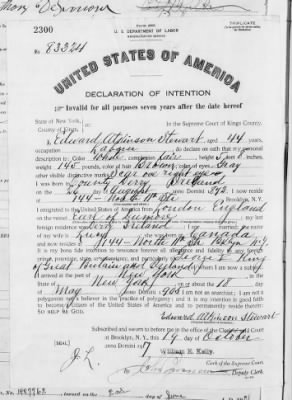 2300
U. S. DEPARTMENT OF LABOR
NATURALIZATION SERVICE
TRIPLICATE
No. 83324
UNITED STATES OF AMERICA
DECLARATION OF INTENTION
Invalid for all purposes seven years after the date hereof
State of New York,
County of Kings,
In the Supreme Court of Kings County.
I, Edward Atkinson Stewart, aged 44 years,
occupation, do declare on oath that my personal
description is: Color White, complexion fair, height 5 feet 8 inches,
weight 145 pounds, color of hair Brown, color of eyes Gray
other visible distinctive marks Scar over right eye
I was born in County Derry Ireland
on the day of August, anno Domini; I now reside
at 144 North St., Brooklyn, N.Y.
I emigrated to the United States of America from London England
on the vessel; my last
foreign residence was Derry Ireland
It is my bona fide intention to renounce forever all allegiance and fidelity to any foreign
prince, potentate, state, or sovereignty, and particularly to George V King
of Great Britain and Ireland, of whom I am now a subject
I arrived at the port of New York, in the
State of New York, on or about the 18 day
of May, anno Domini; I am not an anarchist; I am not a
polygamist nor a believer in the practice of polygamy; and it is my intention in good faith
to become a citizen of the United States of America and to permanently reside therein:
SO HELP ME GOD.
Edward Atkinson Stewart
Subscribed and sworn to before me in the office of the Clerk of said Court
at Brooklyn, N. Y., this 19 day of October
anno Domini 1917
William E. Kelly,
Clerk of the Supreme Court.
Deputy Clerk.
issued on the